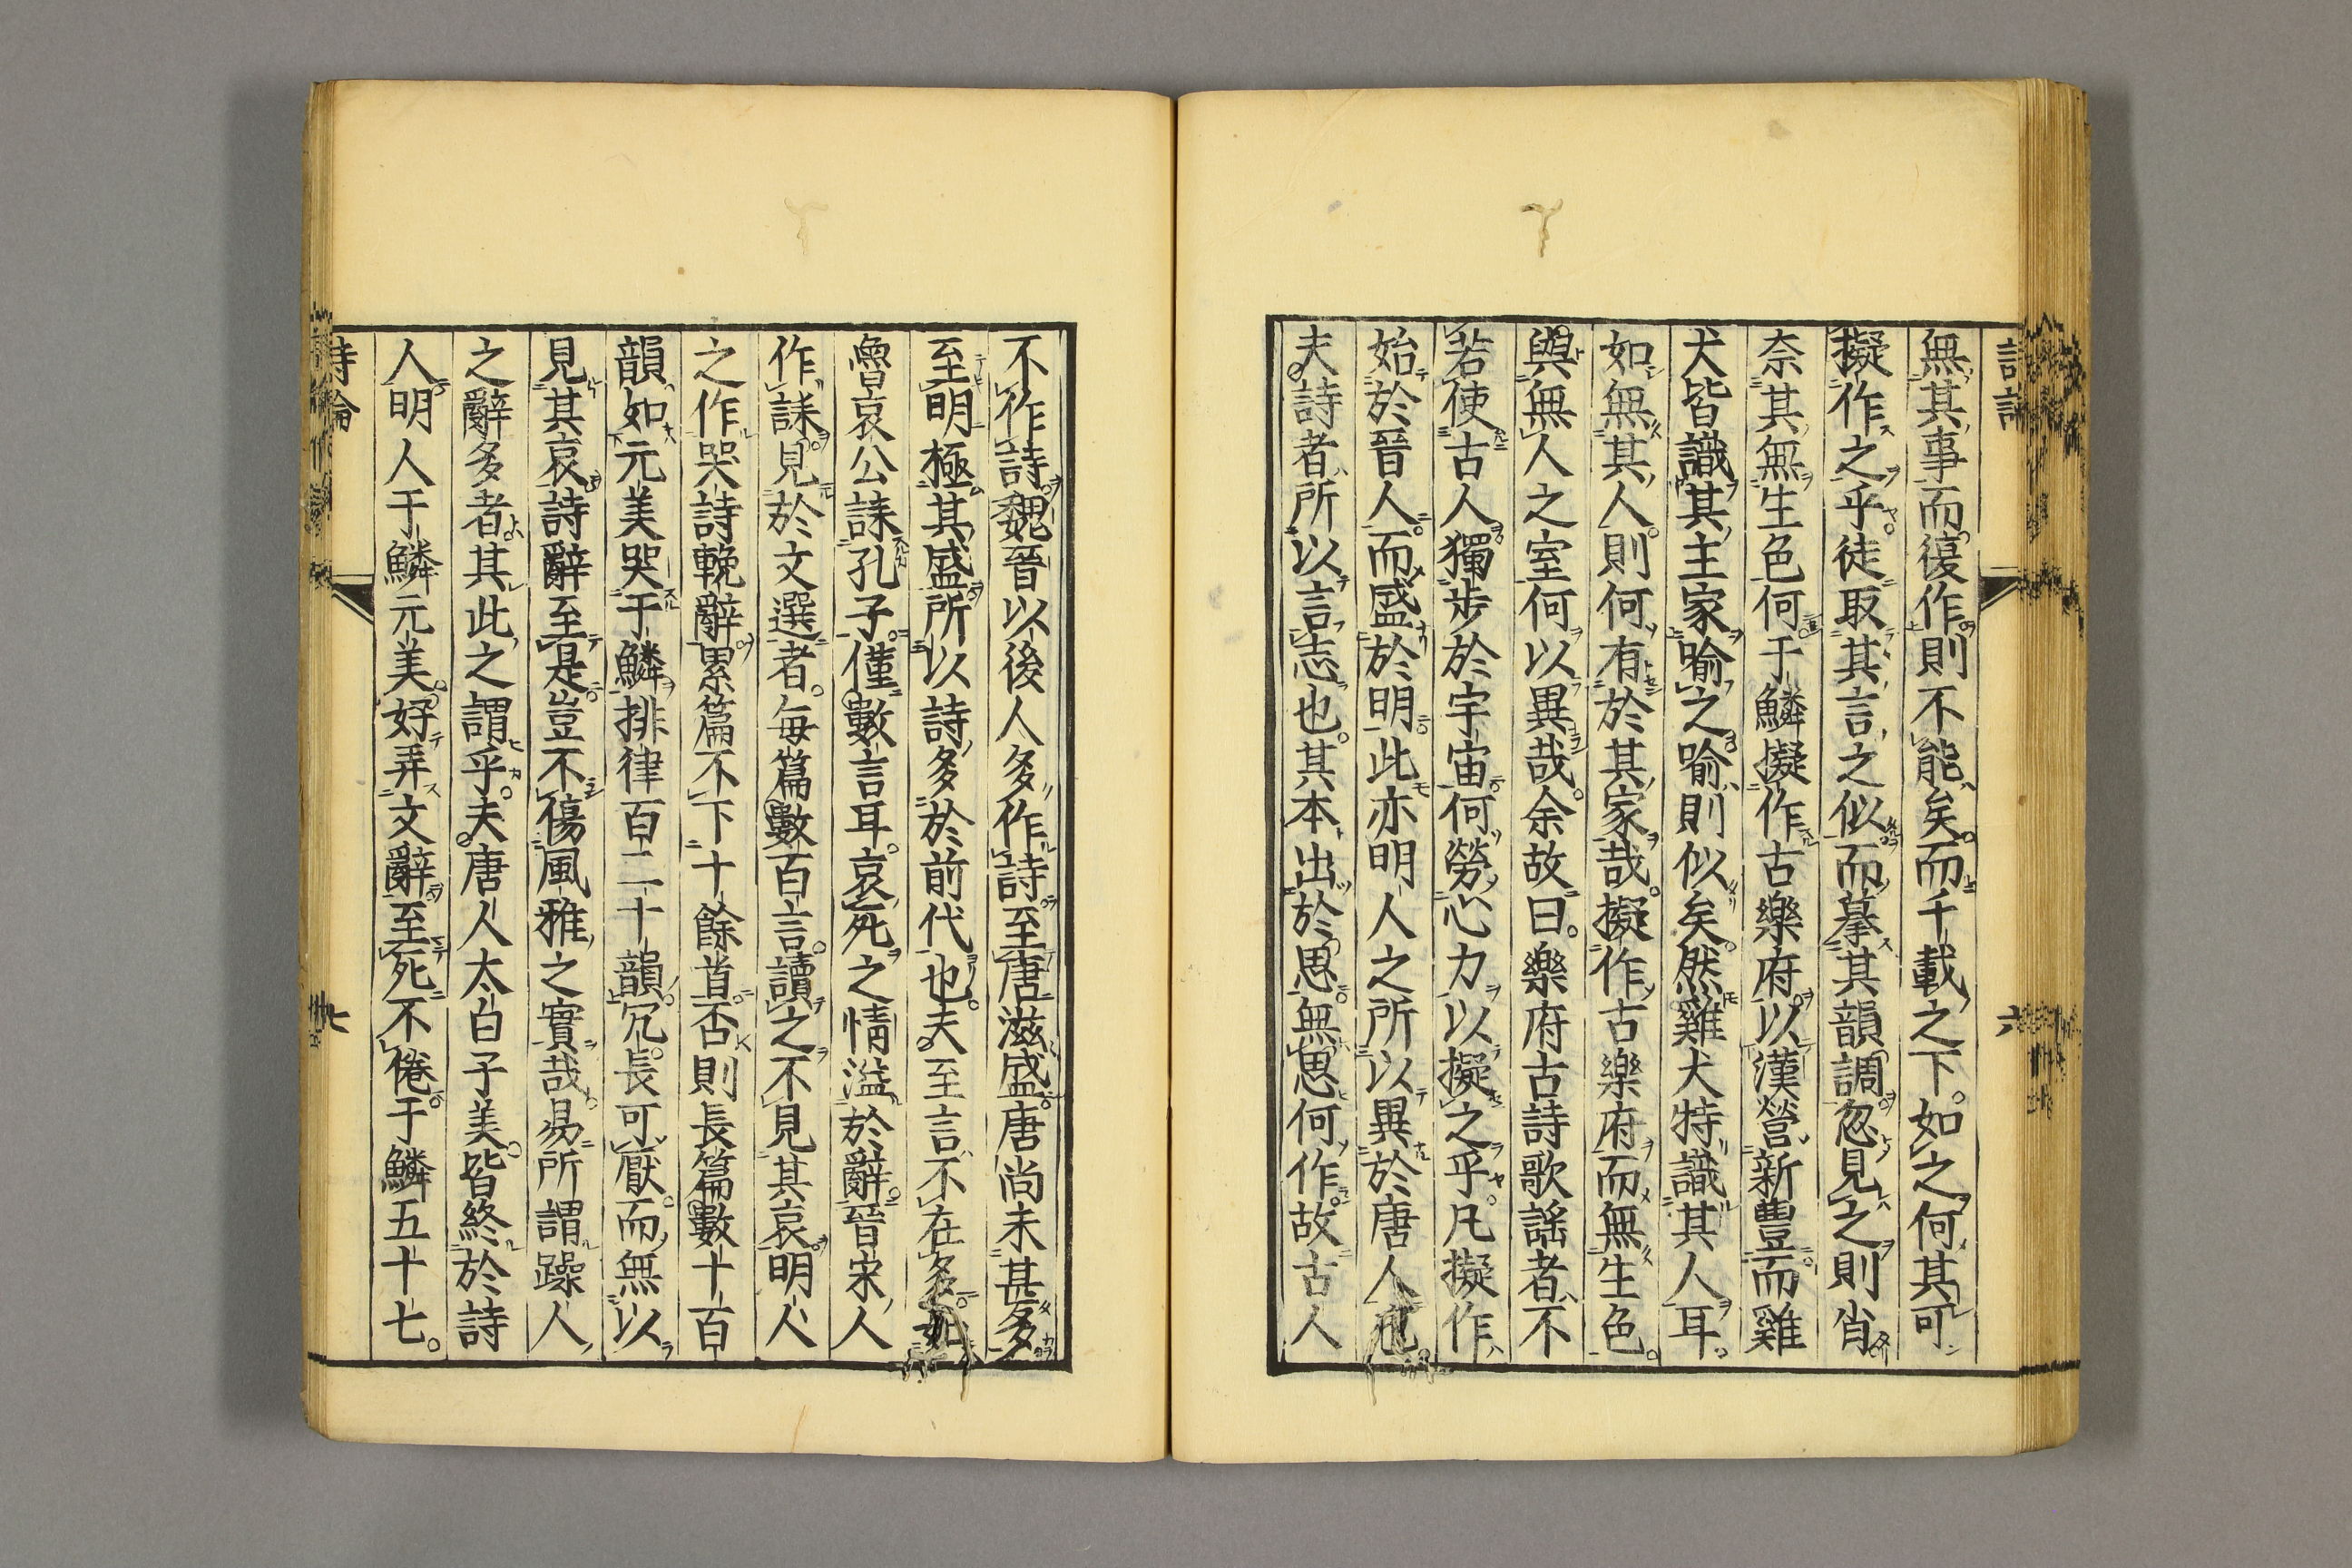 無其事而復作則不能矣。而千載之下。如之何其可
擬作之乎。徒取其言之似而摹其韻調忽見之則肖
奈其無生色何于鱗擬作古樂府以漢營新豐而雞
犬皆識其主家喻之喻則似矣。然雞犬特識其人耳。
如無其人。則何有於其家哉。擬作古樂府而無生色。
與無人之室何以異哉。余故曰。樂府古詩歌謠者不
若使古人獨步於宇宙何勞心力以擬之乎。凡擬作
始於晉人而盛於明此亦明人之所以異於唐人也。
夫詩者所以言志也。其本出於思無思何作。故古人
不作詩魏晉以後人多作詩至唐滋盛唐尚未甚多
至明極其盛所以詩多於前代也。夫至言不在多。如
魯哀公誄孔子。僅數言耳。哀死之情溢於辭。晉宋人
作誄。見於文選者。每篇數百言。讀之不見其哀明人
之作哭詩輓辭累篇不下十餘首。否則長篇數十百
韻如元美哭于鱗排律百二十韻冗長可厭。而無以
見其哀詩辭至是豈不傷風雅之實哉。易所謂躁人
之辭多者。其此之謂乎。夫唐人太白子美。皆終於詩
人明人于鱗元美。好弄文辭至死不倦。于鱗五十七。
詩論
七
六